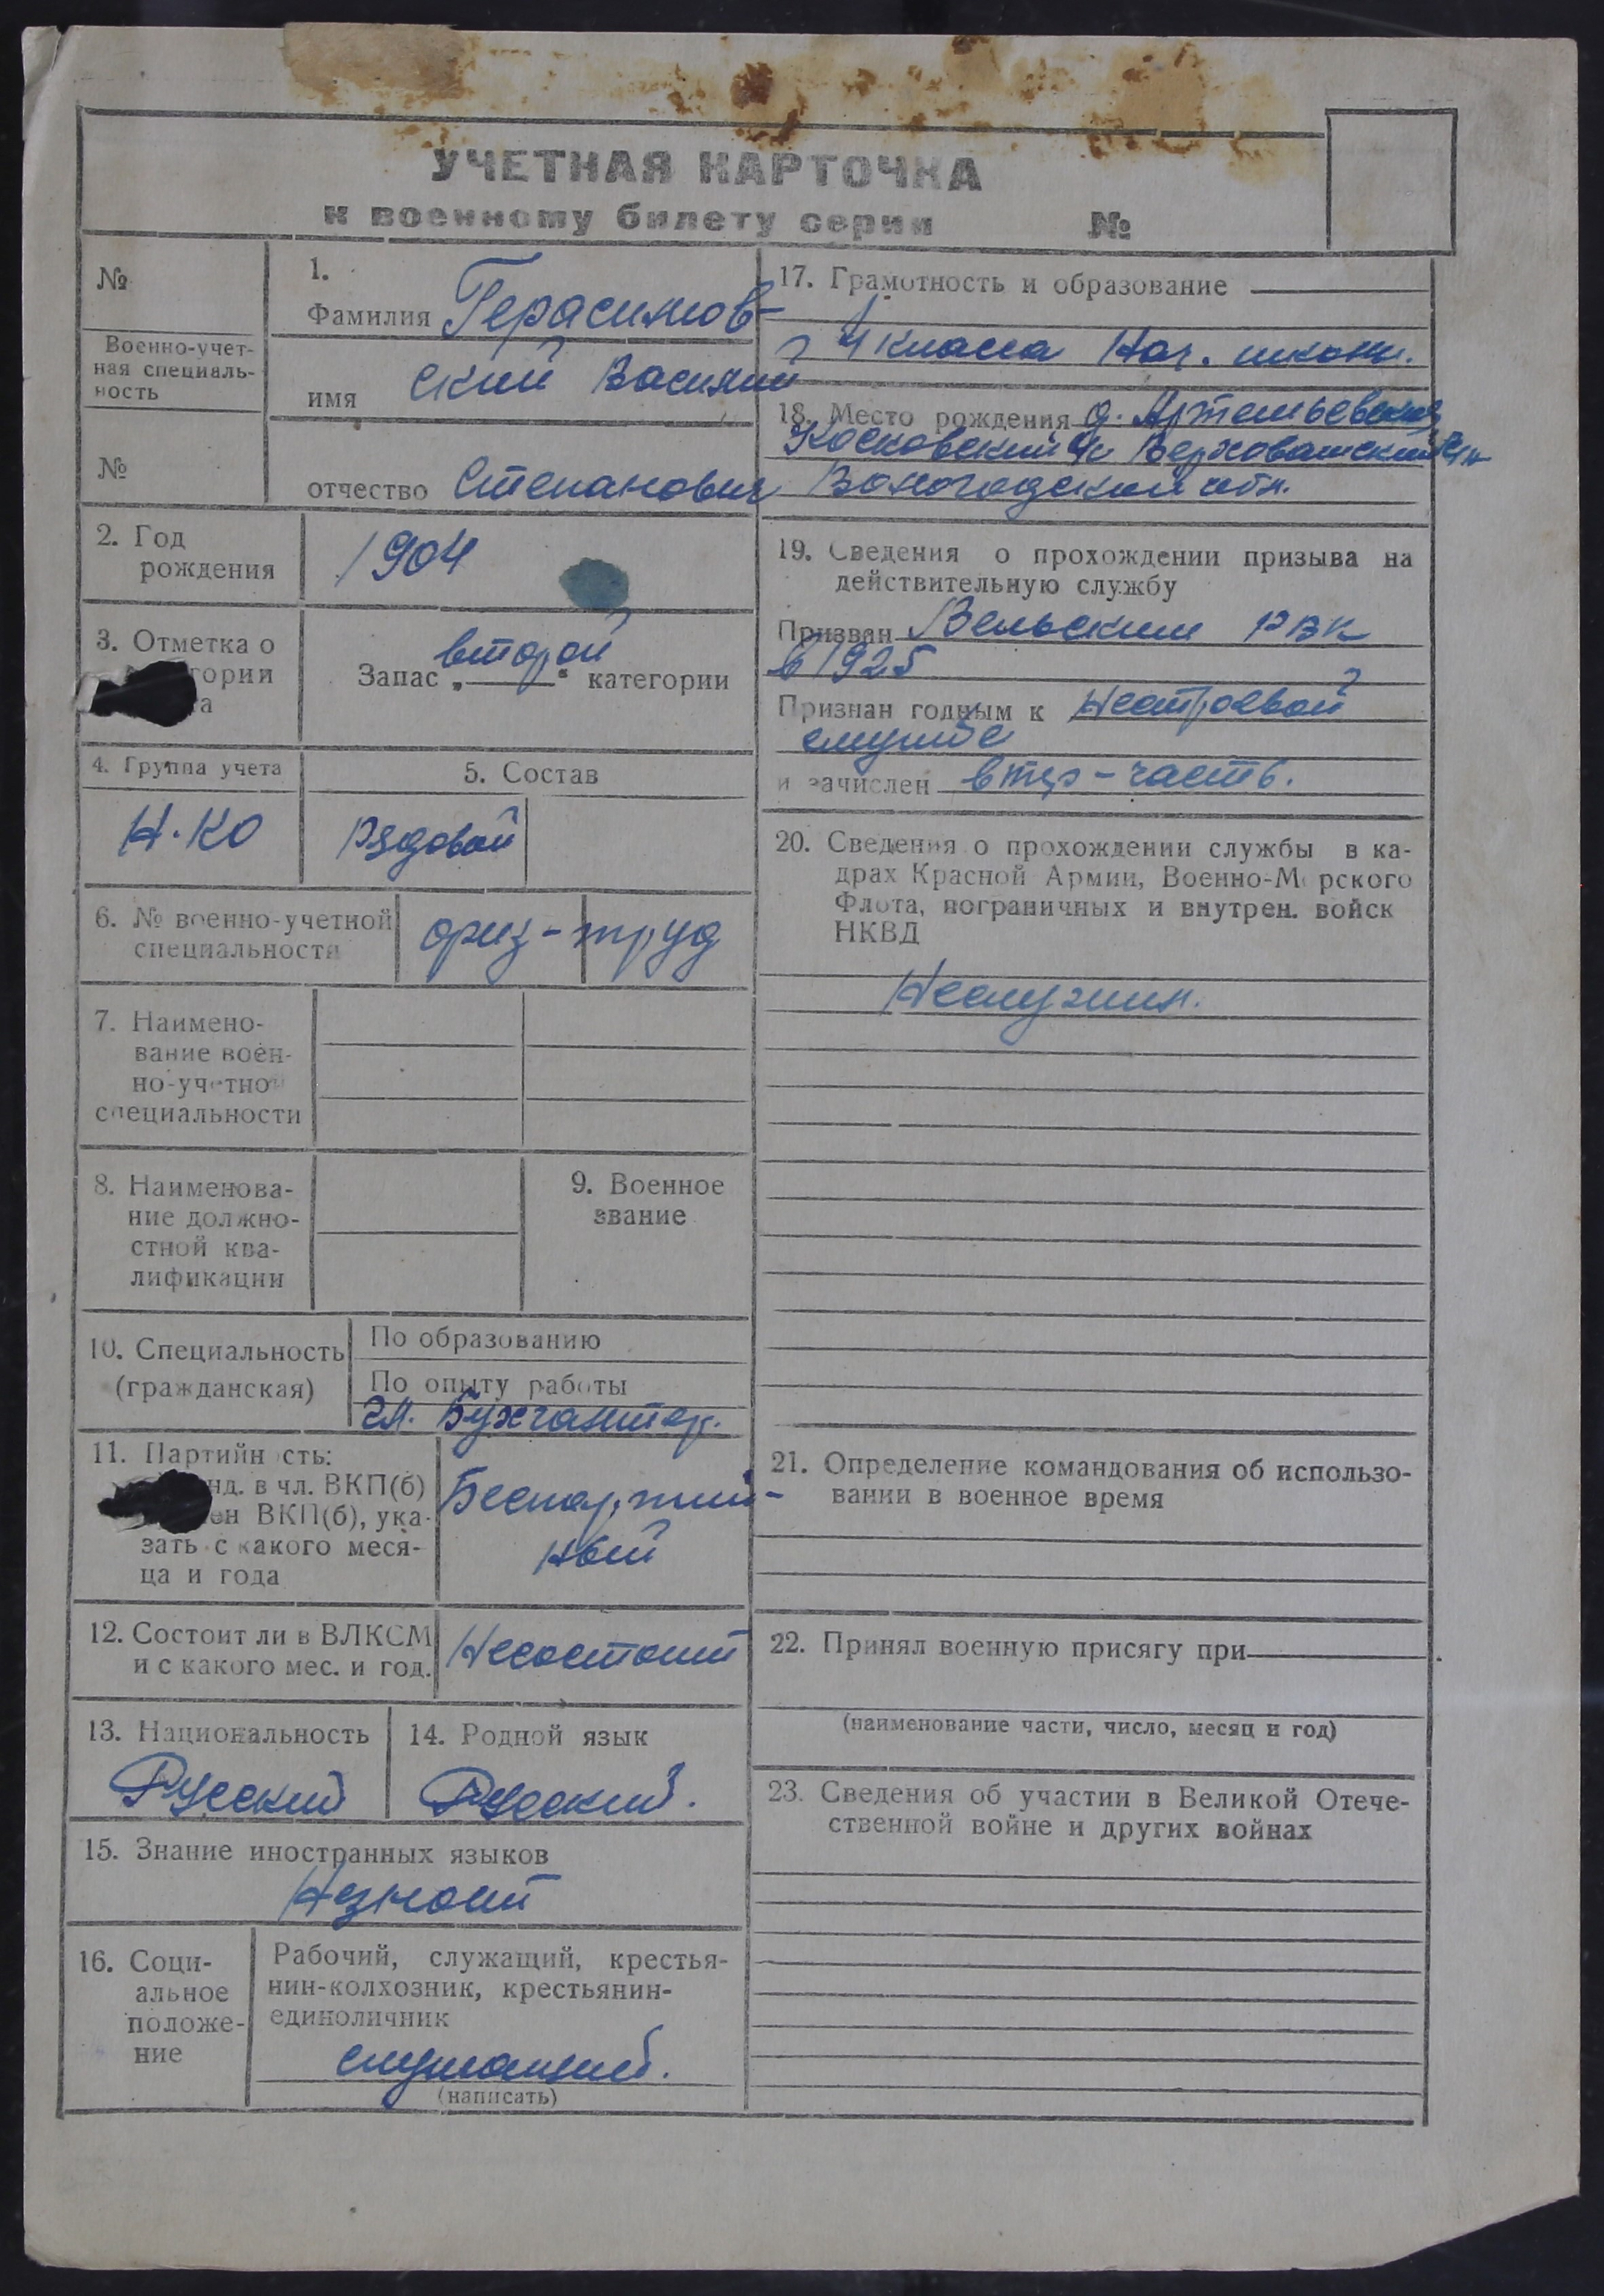 УЧЕТНАЯ КАРТОЧКА
к военному билету серии №
№
Военно-учет-
ная специаль-
ность
№
1.
Фамилия Герасимов-
имя ский Василий
отчество Степанович
2. Год
рождения
1904
3. Отметка о
гории
а
Запас „второй" категории
4. Группа учета
Н.КО
5. Состав
Рядовой
6. № военно-учетной
специальности
физ-труд
7. Наимено-
вание воен-
но-учетной
специальности
8. Наименова-
ние должно-
стной ква-
лификации
9. Военное
звание
10. Специальность
(гражданская)
По образованию
По опыту работы
Гл. Бухгалтер.
11. Партийность:
нд. в чл. ВКП(б)
ен ВКП(б), ука-
зать с какого меся-
ца и года
Беспартий-
ный
12. Состоит ли в ВЛКСМ
и с какого мес. и год.
Несостоит
13. Национальность
Русский
14. Родной язык
Русский.
15. Знание иностранных языков
Незнает
16. Соци-
альное
положе-
ние
Рабочий, служащий, крестья-
нин-колхозник, крестьянин-
единоличник
служащий.
(написать)
17. Грамотность и образование
4 класса Нач. школы.
18. Место рождения д. Артемьевская
Косковский с/с Верховажский р-н
Вологодской обл.
19. Сведения о прохождении призыва на
действительную службу
Призван Вельским РВК
в 1925
Признан годным к Нестроевой
службе
и зачислен в тер-часть.
20. Сведения о прохождении службы в ка-
драх Красной Армии, Военно-Морского
Флота, пограничных и внутрен. войск
НКВД
Неслужил.
21. Определение командования об использо-
вании в военное время
22. Принял военную присягу при
(наименование части, число, месяц и год)
23. Сведения об участии в Великой Отече-
ственной войне и других войнах